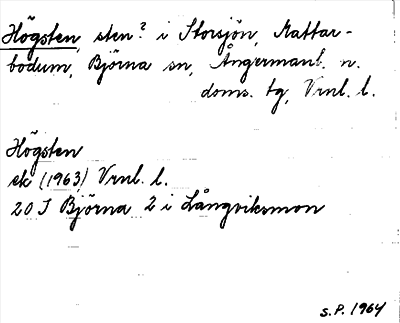 Högsten, sten? i Storsjön, Mattar-
bodum, Björna sn, Ångermanl. n.
doms. tg, Vrnl. l.
Högsten
ek (1963) Vrnl. l.
20 J Björna 2 i Långviksmon
S.P. 1964